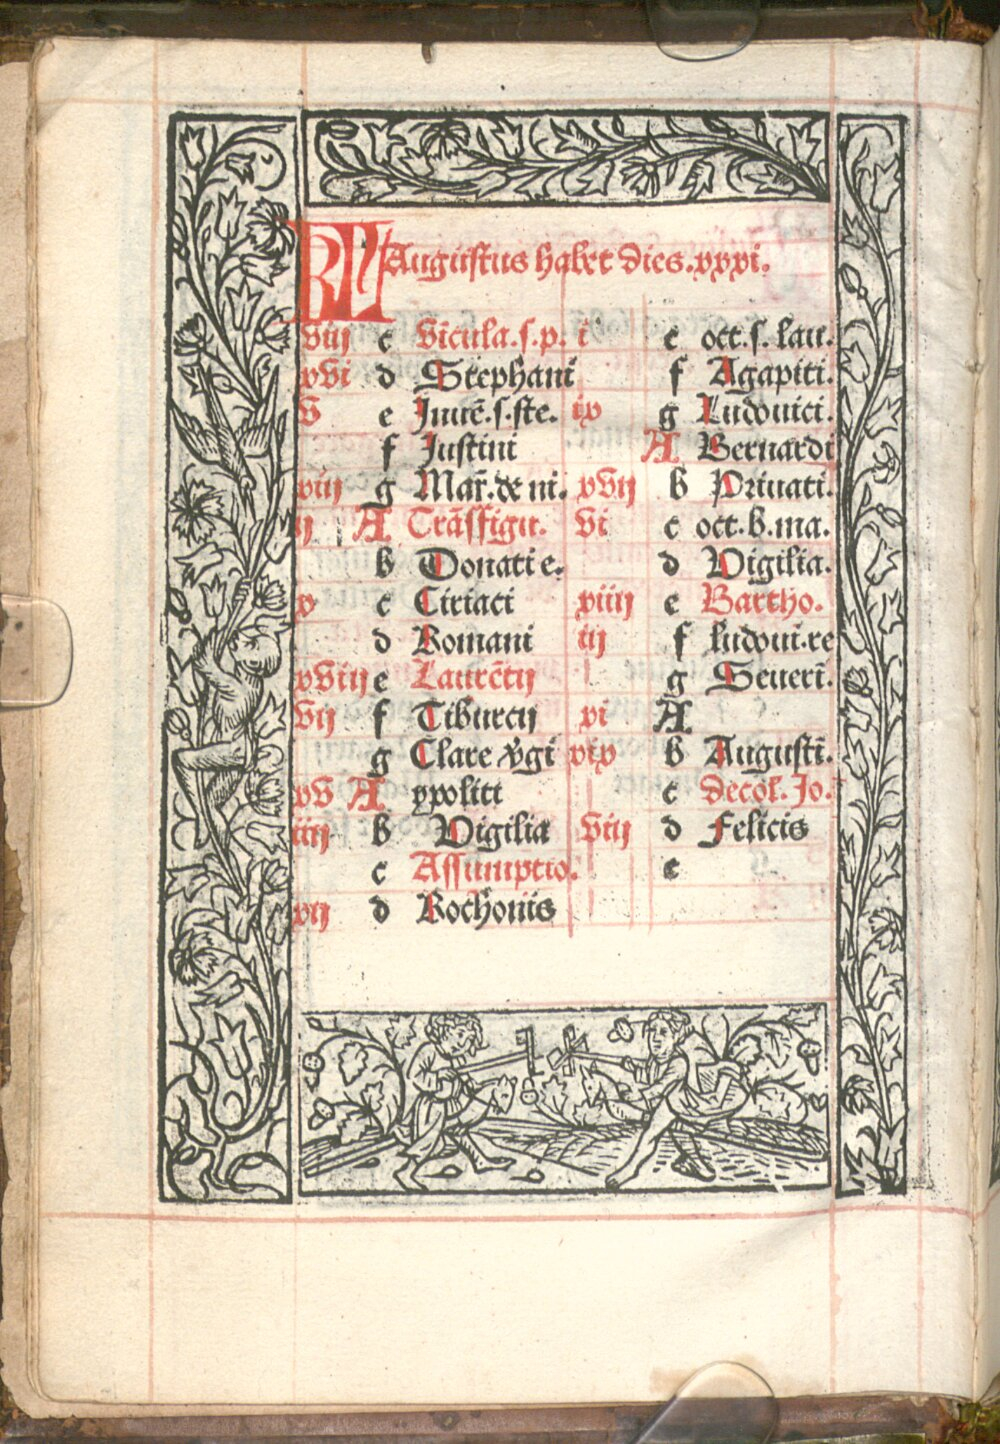 KL Augustus habet dies.xxxi.
viij c Vīcula.s.p.
xvi d Stephani
v e Inuē.s.ste.
f Iustini
xiij g Mar̄.de ni.
ij A Trāsfigu.
b Donati e.
x c Ciriaci
d Romani
xviij e Laurētij
vij f Tiburcij
g Clare v̄gi
xv A ypoliti
iiij b Vigilia
c Assumptio.
xij d Rochonis
i e oct.s.lau.
f Agapiti.
ix g Ludouici.
A Bernardi
xvij b Priuati.
vi c oct.b.ma.
d Vigilia.
xiiij e Bartho.
iij f ludoui.re
g Seueri.
xi A
xix b Augusti.
c decol.Io.
viij d Felicis
e